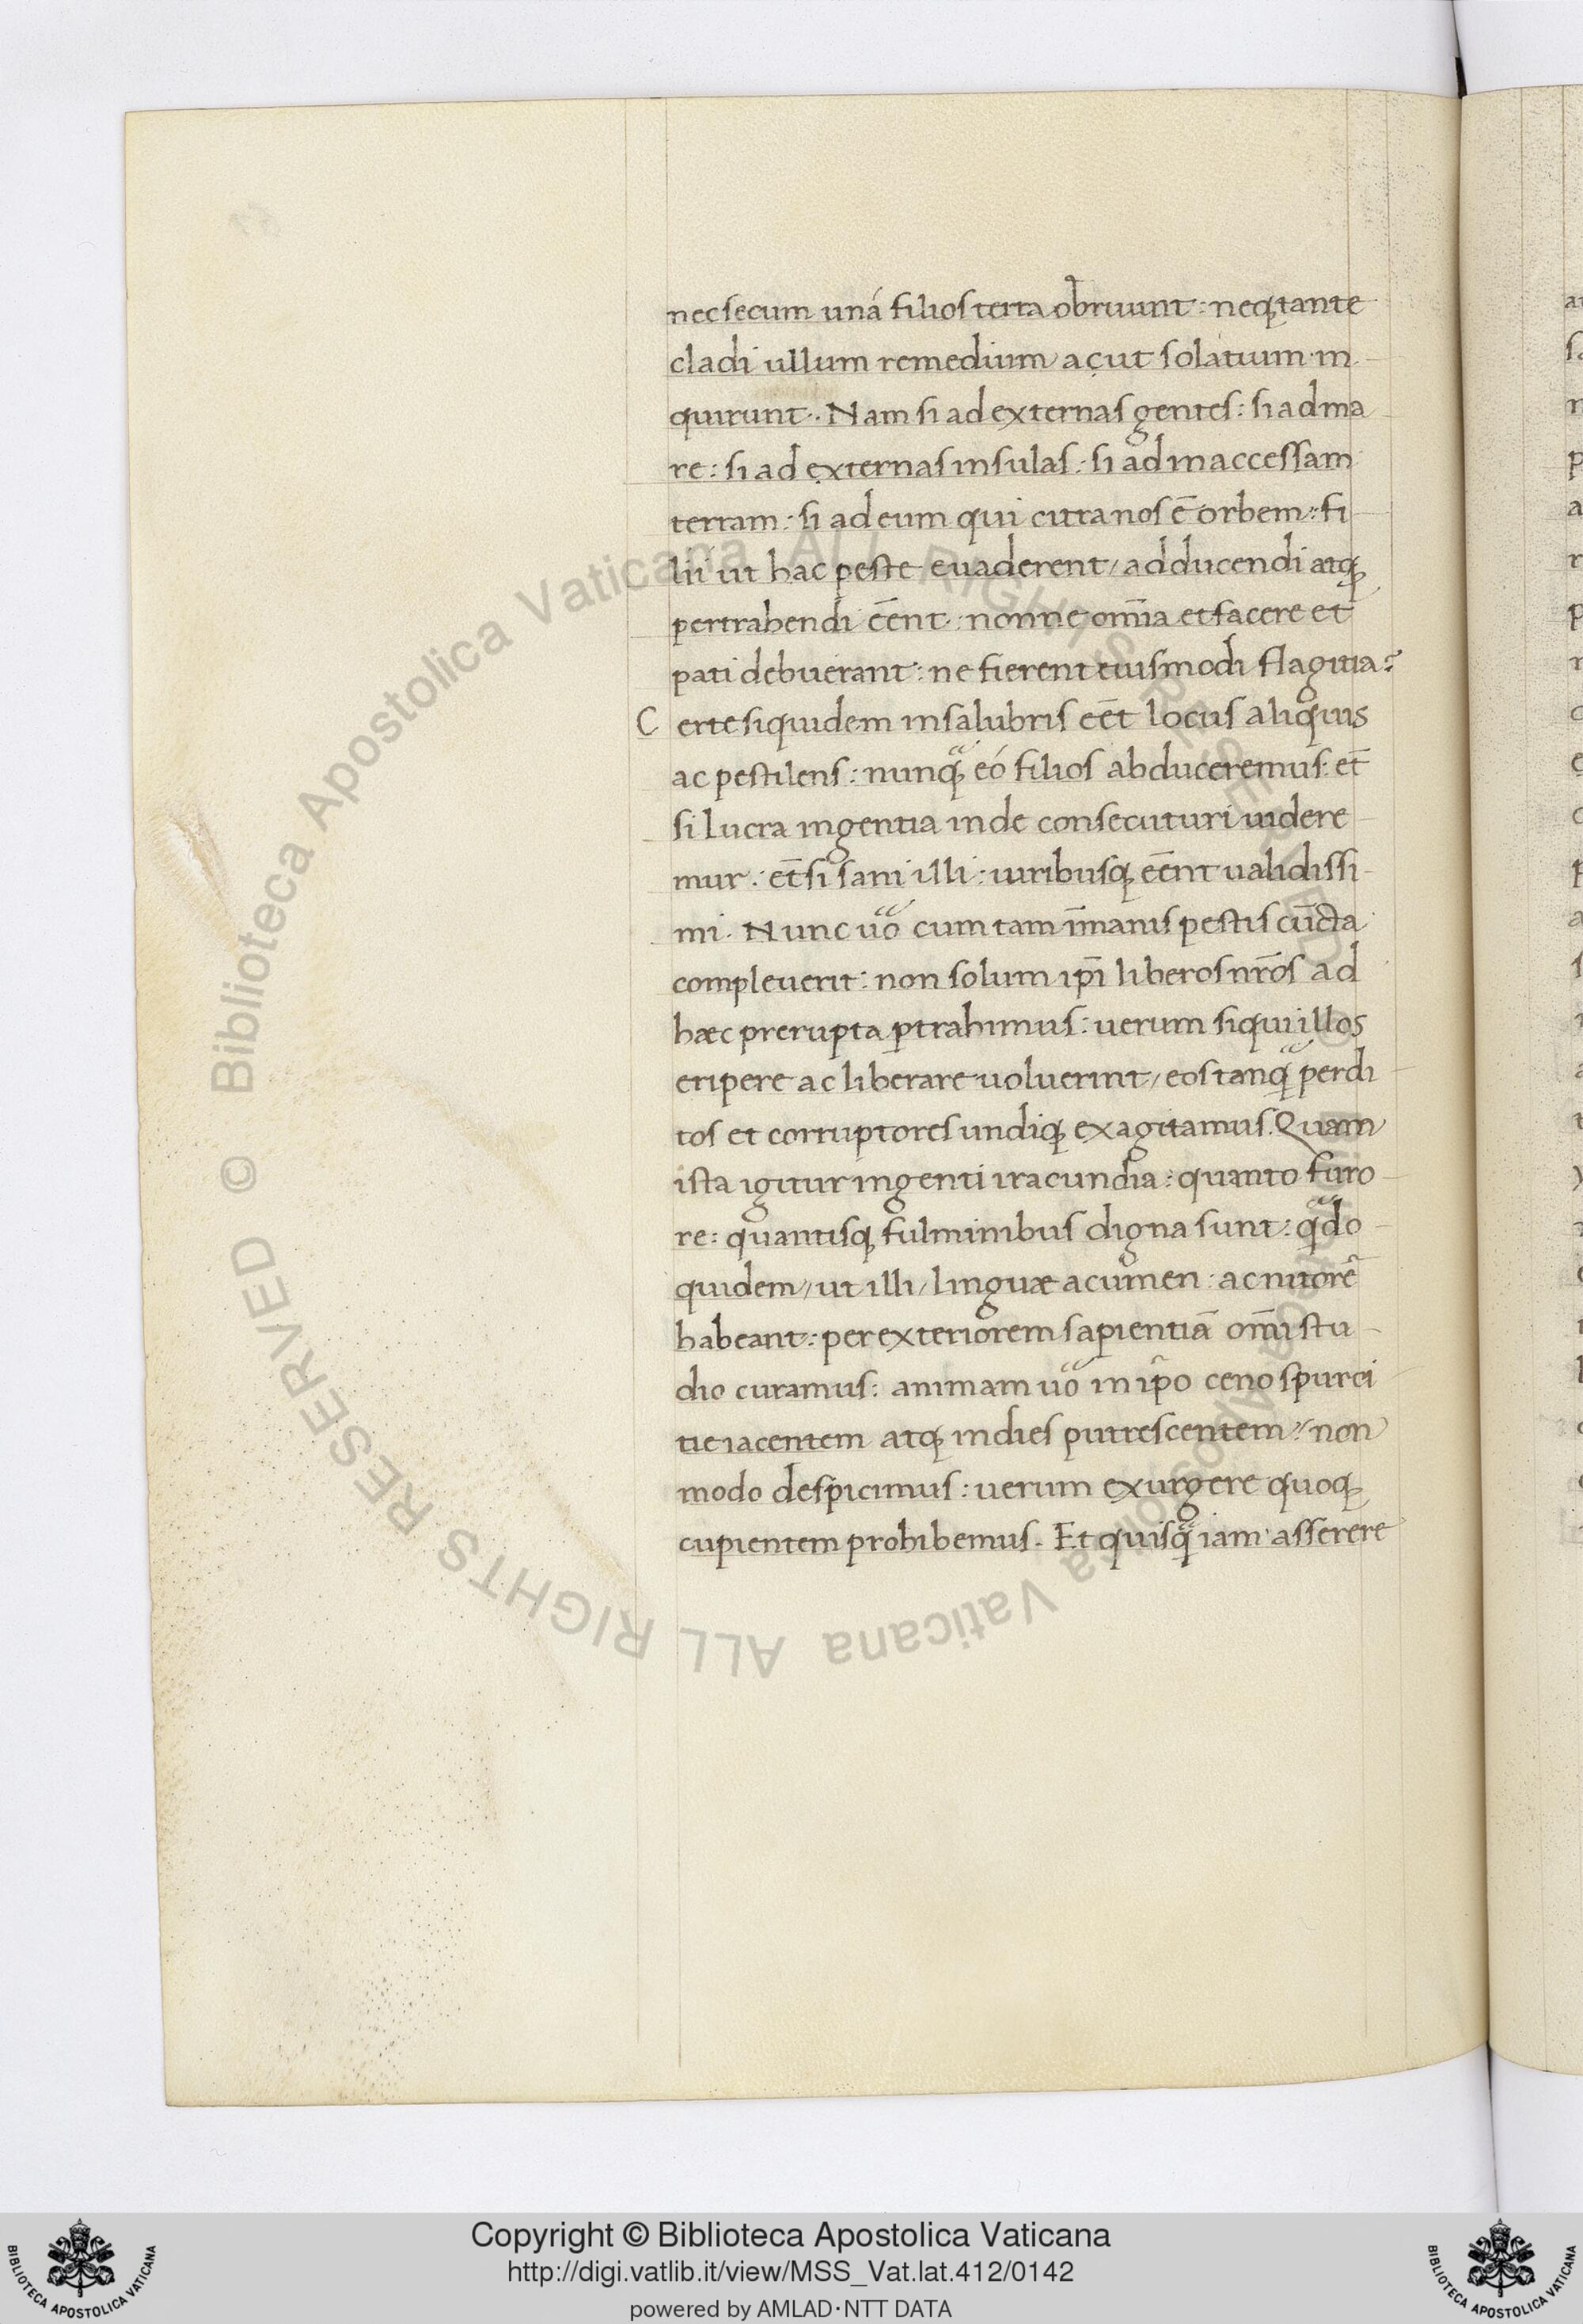 nec secum uná filios terra obruunt: neq; tante
cladi ullum remedium ac ut solatium in
quirunt. Nam si ad externas gentes: si ad ma
re: si ad externas insulas: si ad inaccessam
terram: si ad eum qui citra nos ē orbem: fi
lii ut hac peste euaderent, adducendi atq;
pertrahendi eēnt: nonne om̄ia et facere et
pati debuerant: ne fierent eiusmodi flagitia?
Certe siquidem insalubris eēt locus aliquis
ac pestilens: nunqᷓ eó filios abduceremus: et
si lucra ingentia inde consecuturi uidere
mur: et̄ si sani illi: uiribusq; eēnt ualidissi
mi. Nunc uᷓo cum tam īmanis pestis cūcta
compleuerit: non solum ip̄i liberos nr̄os ad
hæc prerupta ꝑtrahimus: uerum siqui illos
eripere ac liberare uoluerint, eos tanqᷓ perdi
tos et corruptores undiq; exagitamus. Quam
ista igitur ingenti iracundia: quanto furo
re: quantisq; fulminibus digna sunt: qᷓdo
quidem, ut illi, linguæ acumen: ac nitorē
habeant: per exteriorem sapientiā om̄i stu
dio curamus: animam uᷓo in ip̄o ceno spurci
tie iacentem atq; indies putrescentem, non
modo despicimus: uerum exurgere quoq;
cupientem prohibemus. Et quisqᷓ iam asserere
Copyright © Biblioteca Apostolica Vaticana
http://digi.vatlib.it/view/MSS_Vat.lat.412/0142
powered by AMLAD·NTT DATA
BIBLIOTECA APOSTOLICA VATICANA
BIBLIOTECA APOSTOLICA VATICANA
© Biblioteca Apostolica Vaticana ALL RIGHTS RESERVED
© Biblioteca Apostolica Vaticana ALL RIGHTS RESERVED